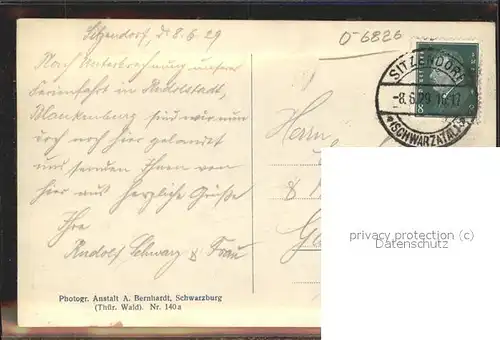 Sitzendorf, d. 8.6.29
O-6826
Nach Unterbrechung unserer
Ferienfahrt in Rudolstadt,
Blankenburg sind wir nun
doch noch hier gelandet
und senden Ihnen von
hier aus herzliche Grüße
Ihre
Rudolf Schwarz & Frau
SITZENDORF
-8.6.29. 16-17
*(SCHWARZATAL)*
Herrn
8
privacy protection (c)
Datenschutz
Photogr. Anstalt A. Bernhardt, Schwarzburg
(Thür. Wald). Nr. 140a